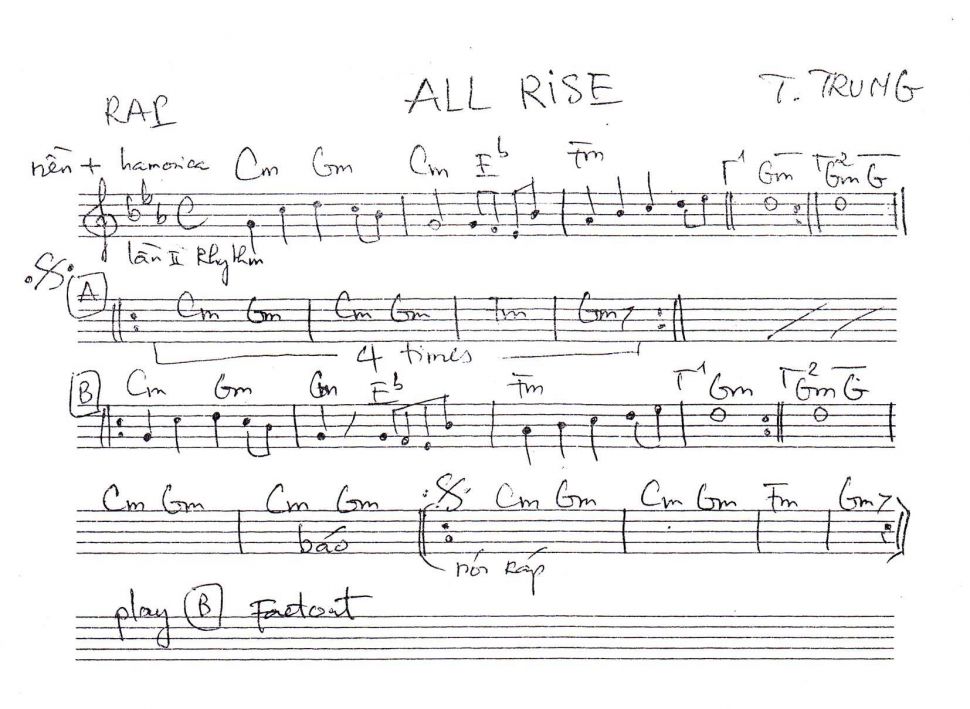 ALL RiSE
T. TRUNG
RAP
nền + hamonica Cm Gm Cm Eb Fm 1 Gm 2 Gm G
C
lần II Rhythm
A
Cm Gm Cm Gm Fm Gm7
4 times
B Cm Gm Cm Eb Fm 1 Gm 2 Gm G
Cm Gm Cm Gm Cm Gm Cm Gm Fm Gm7
báo
nói Ráp
play B